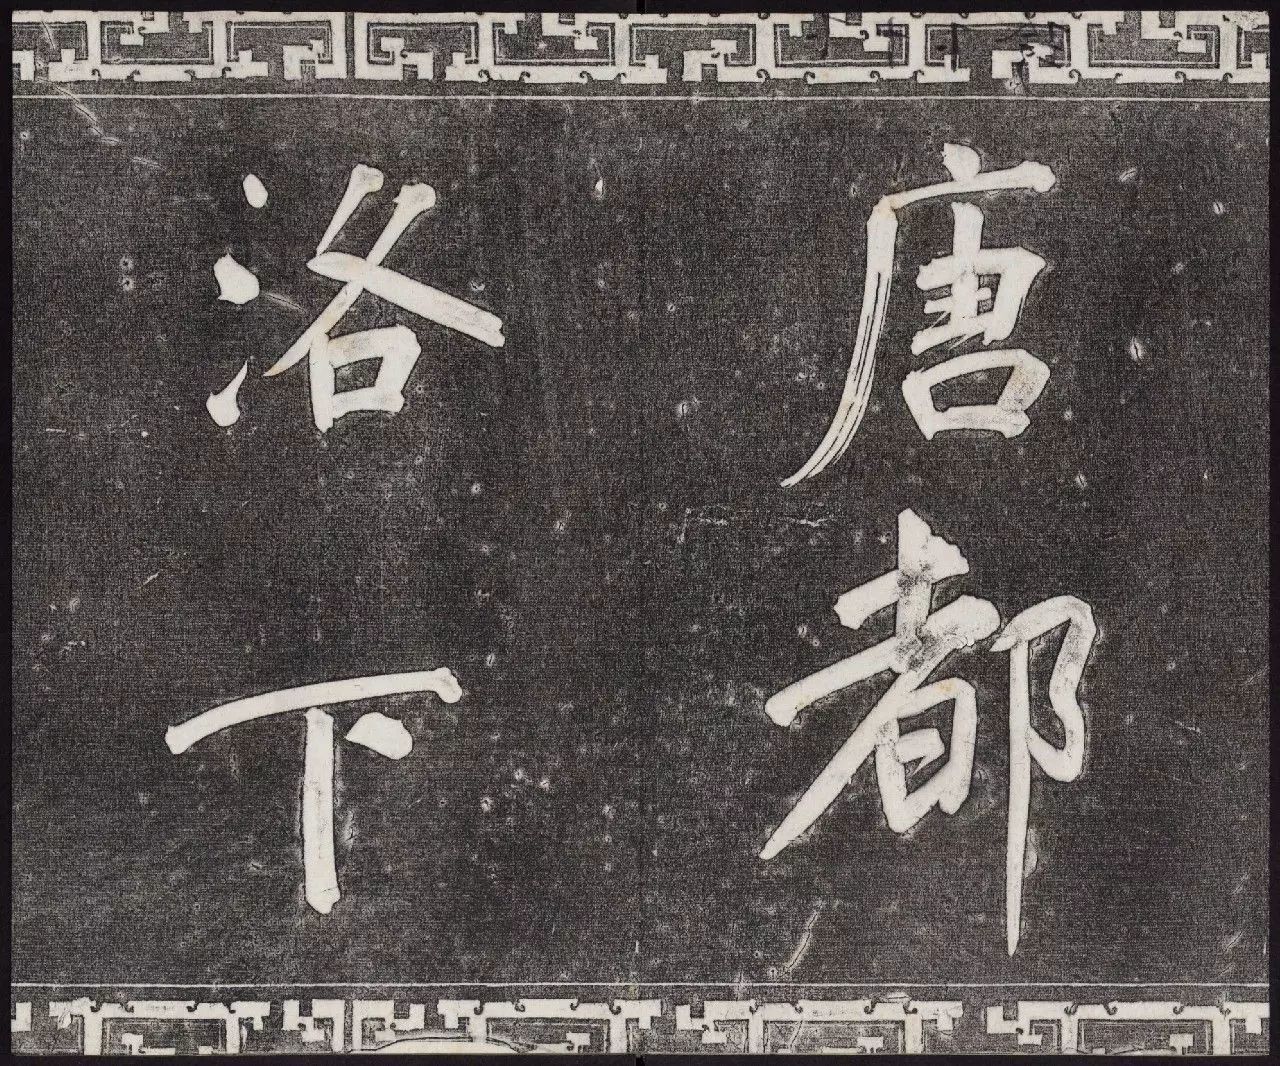 唐都
洛下